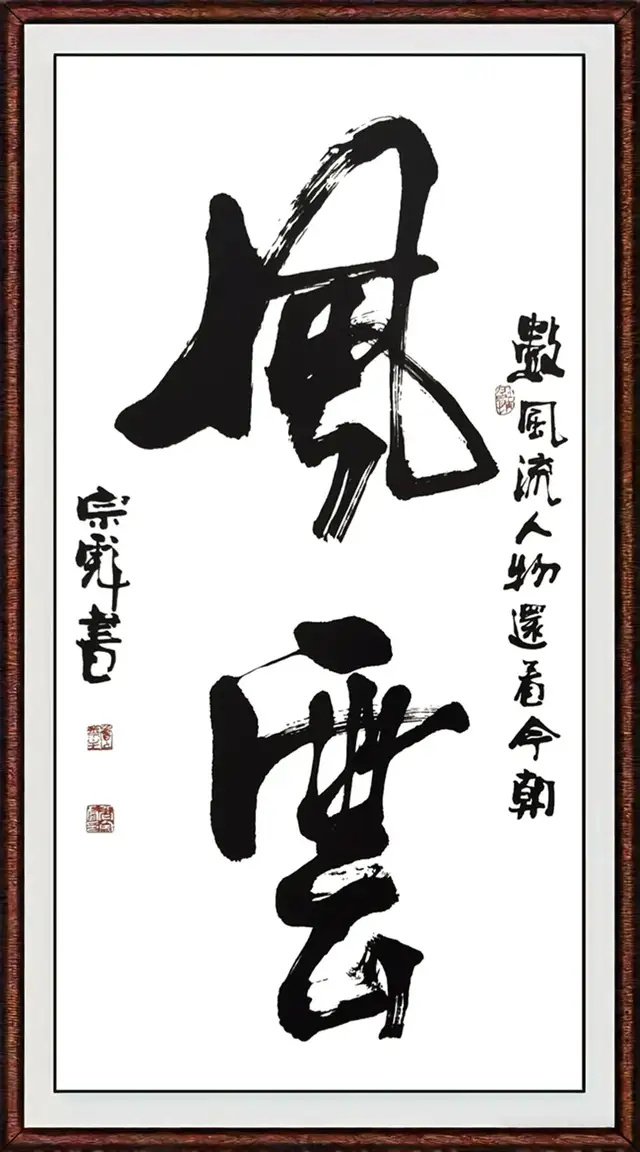 數風流人物還看今朝
風雲
宗輝書